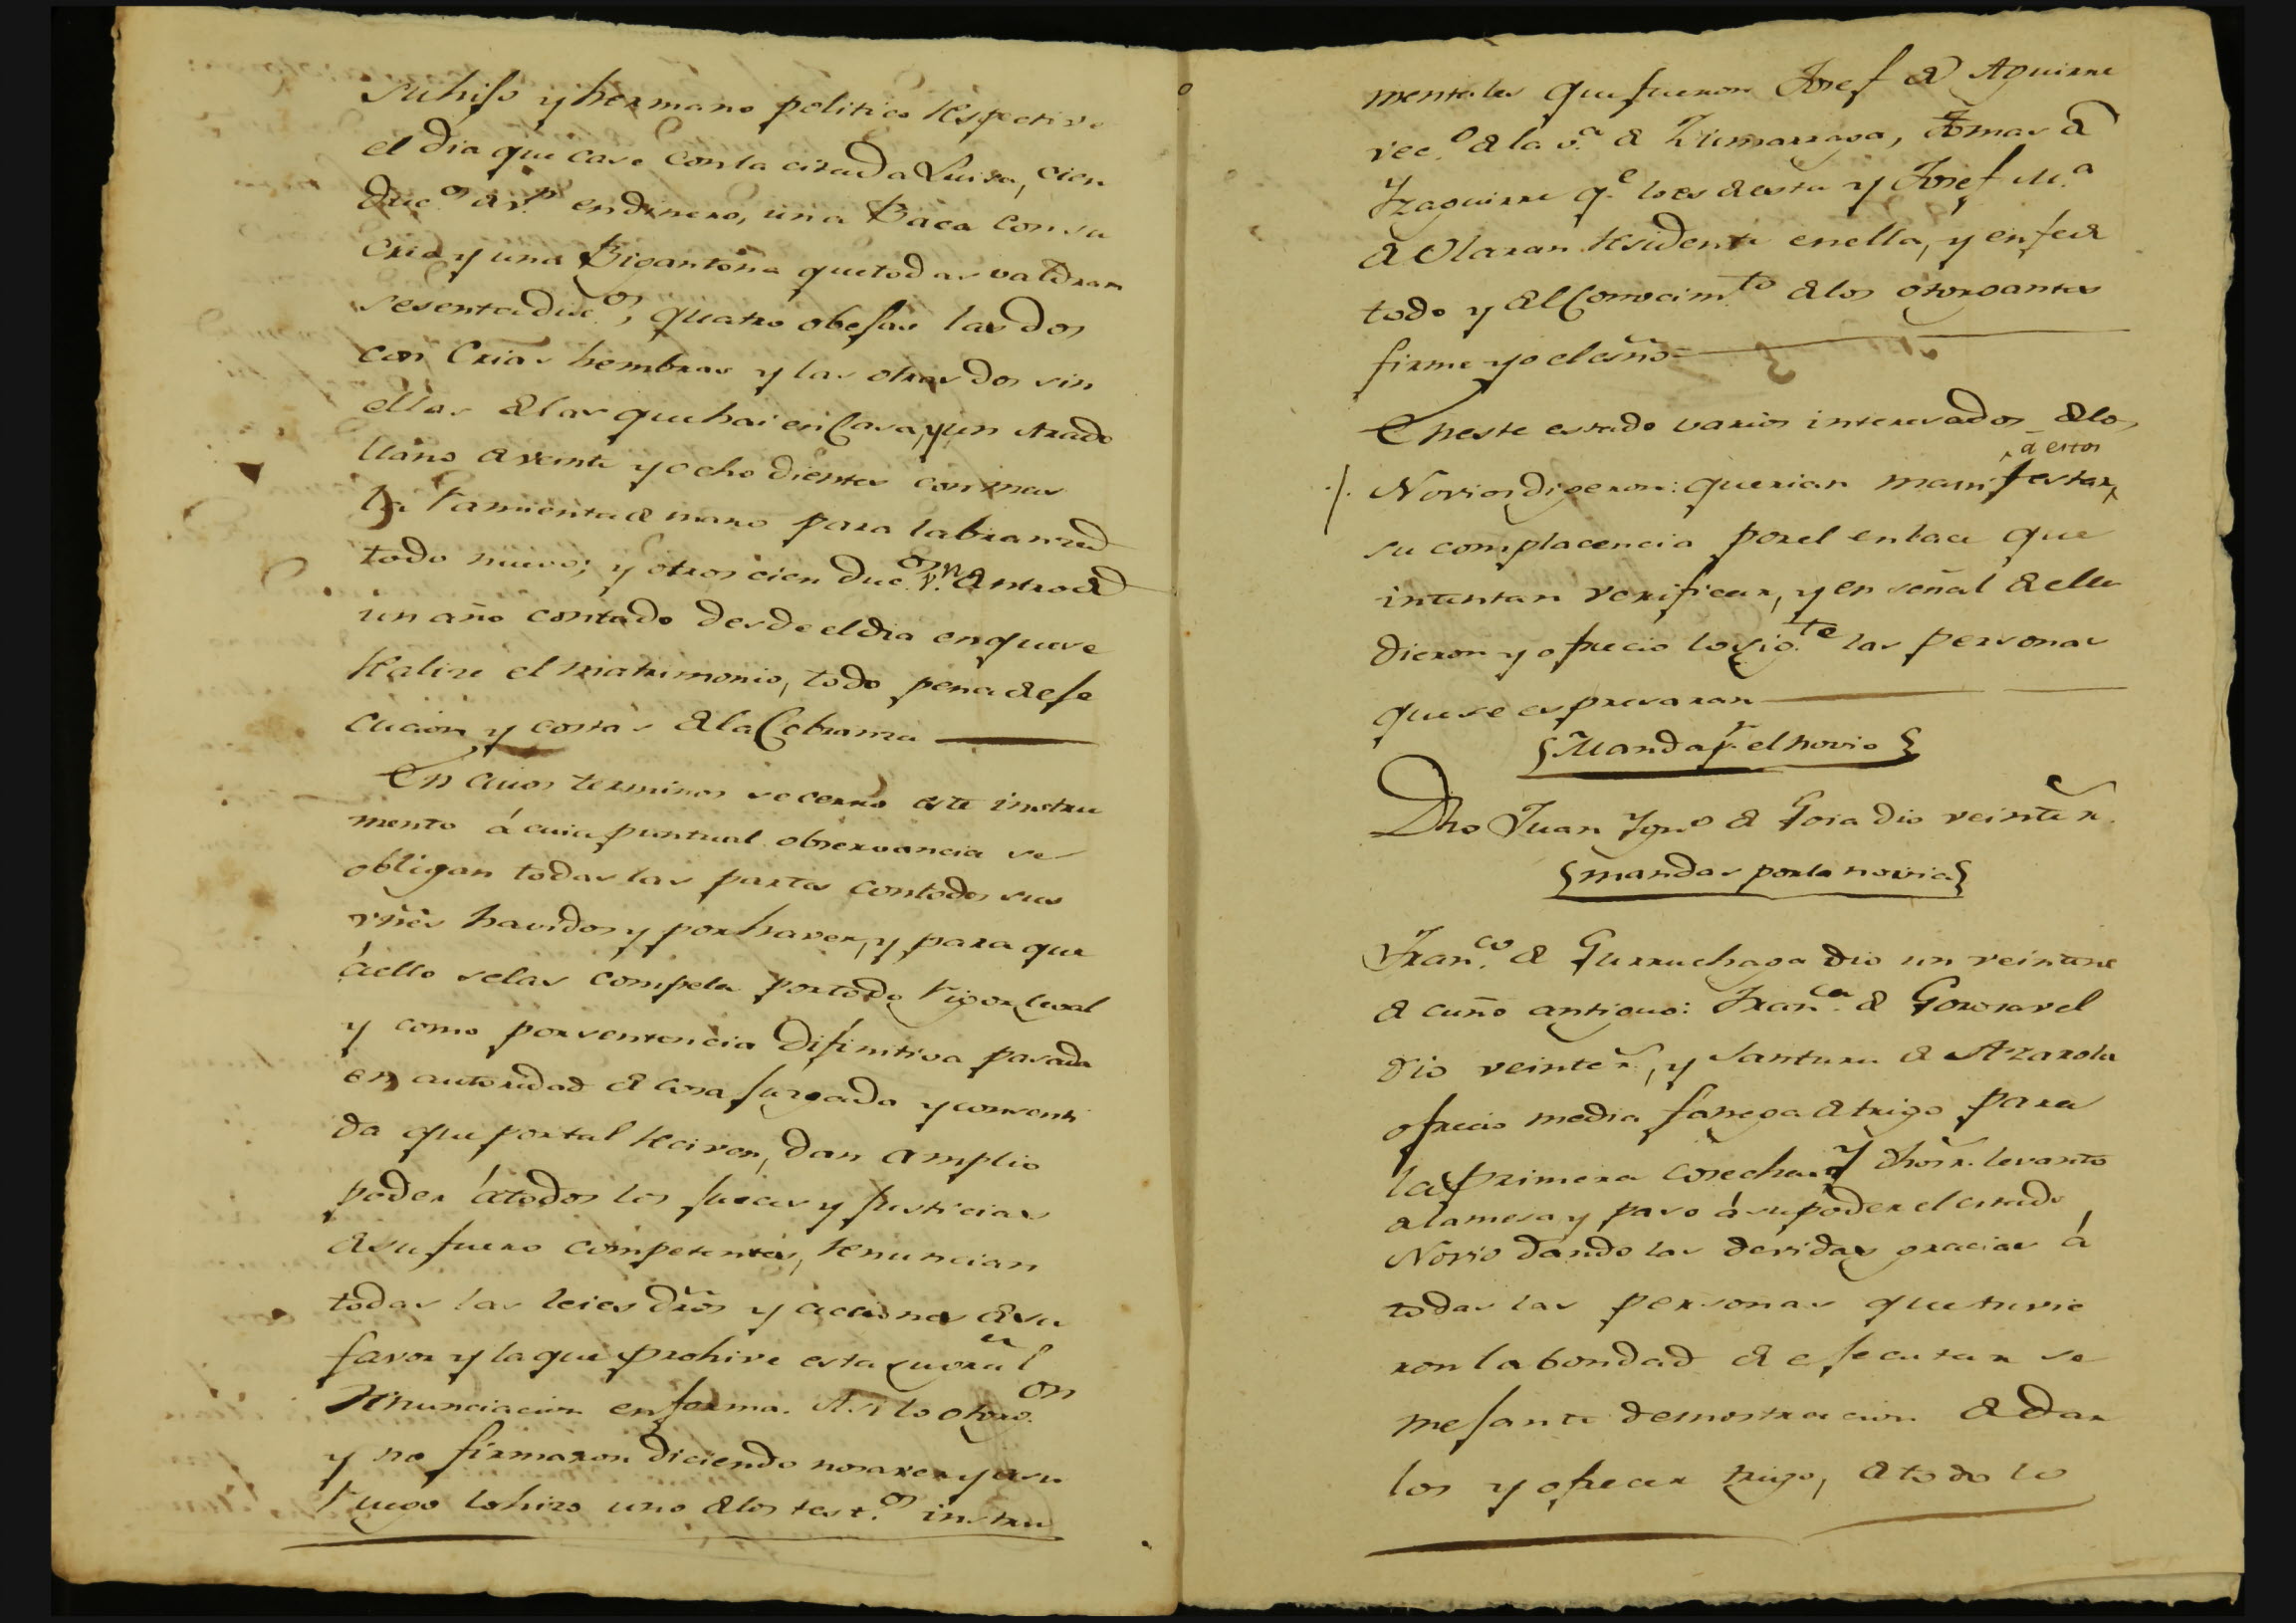 su hijo y hermano politico respectivo
el dia que case con la citada Luisa, cien
duc.os de v.n en dinero, una Baca con su
cria y una Bigantona que todas valdran
sesenta duc.os, quatro obejas las dos
con Crias hembras y las otras dos sin
ellas de las que hai en Casa, y un Arado
llano de veinte y ocho dientes con mas
la ramienta de mano para labranza
todo nuevo; y otros cien duc.os v.n dentro de
un año contado desde el dia en que se
realize el matrimonio, todo pena de eje
cucion y costas de la Cobranza
En cuios terminos se cerro este instru
mento á cuia puntual observancia se
obligan todas las partes con todos sus
vñes havidos y por haver, y para que
á ello se las compela por todo rigor legal
y como por sentencia difinitiva pasada
en autoridad de cosa juzgada y consenti
da que por tal reciven, dan amplio
poder á todos los jueces y justicias
de su fuero competentes, renuncian
todas las leies drõs y acciones de su
favor y la que prohive esta gral
renunciacion en forma. Asi lo otorg.on
y no firmaron diciendo no saver y a su
ruego lo hizo uno de los test.os instru
mentales que fueron Josef de Aguirre
vec.o de la v.a de Zumarraga, Tomas de
Yzaguirre q.e lo es de esta y Josef M.a
de Olaran residente en ella, y en fe de
todo y del Conocim.to de los otorgantes
firme yo el esño=
En este estado varios interesados de los
a estos
Novios digeron: querian manifestar
su complacencia por el enlace que
intentan verificar, y en señal de ello
dieron y ofrecio lo sig.te las personas
que se espresaran
Manda p.r el novio
Dho Juan Ygn.o de Goia dio veinte r.
mandas por la novia
Fran.co de Gurruchaga dio un veinteno
de cuño antiguo: Fran.ca de Gorosavel
dio veinte r., y Santuru de Azarola
ofrecio media fanega de trigo para
la primera cosecha: y dhos r. levanto
de la mesa y paso á su poder el citado
Novio dando las devidas gracias á
todas las personas que tuvie
ron la bondad de ejecutar se
mejante demostracion de dar
los y ofrecer trigo, de todo lo